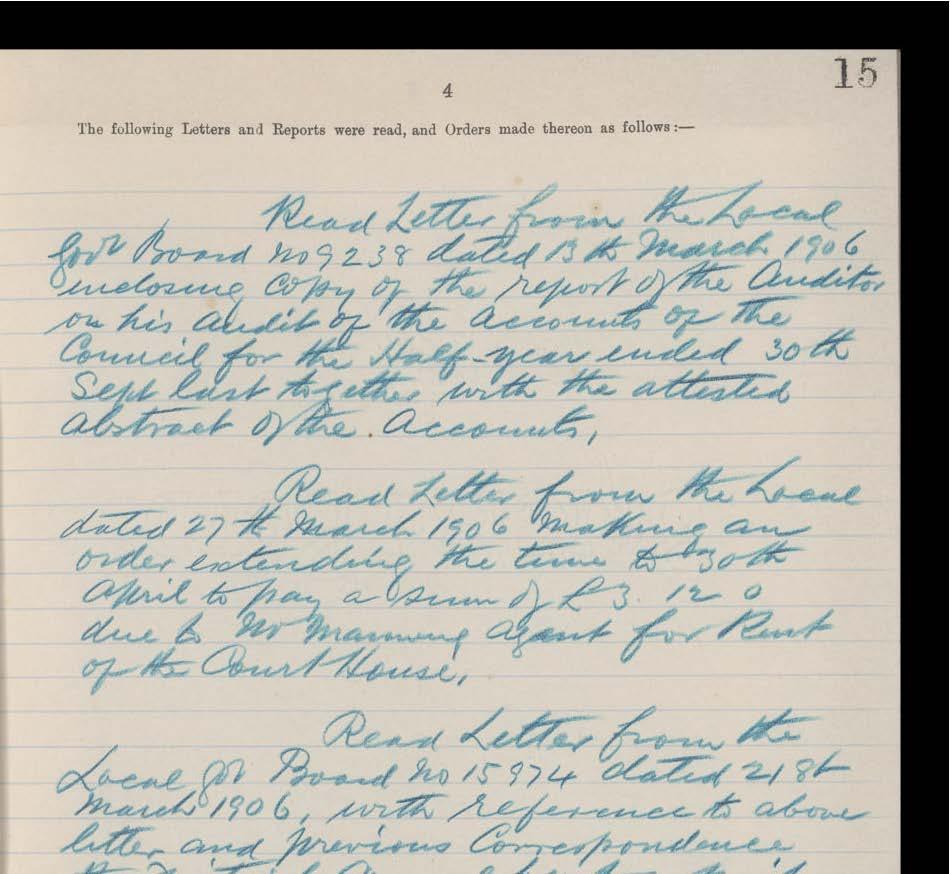 15
4
The following Letters and Reports were read, and Orders made thereon as follows:—
Read Letter from the Local
Govt Board No 9238 dated 13th March 1906
inclosing copy of the report of the Auditor
on his Audit of the Accounts of the
Council for the Half-year ended 30th
Sept last together with the attested
abstract of the Accounts,
Read Letter from the Local
dated 27th March 1906 making an
order extending the time to 30th
April to pay a sum of £3. 12 0
due to Manning agent for Rent
of the Court House,
Read Letter from the
Local Govt Board No 15974 dated 21st
March 1906, with reference to above
letter and previous Correspondence